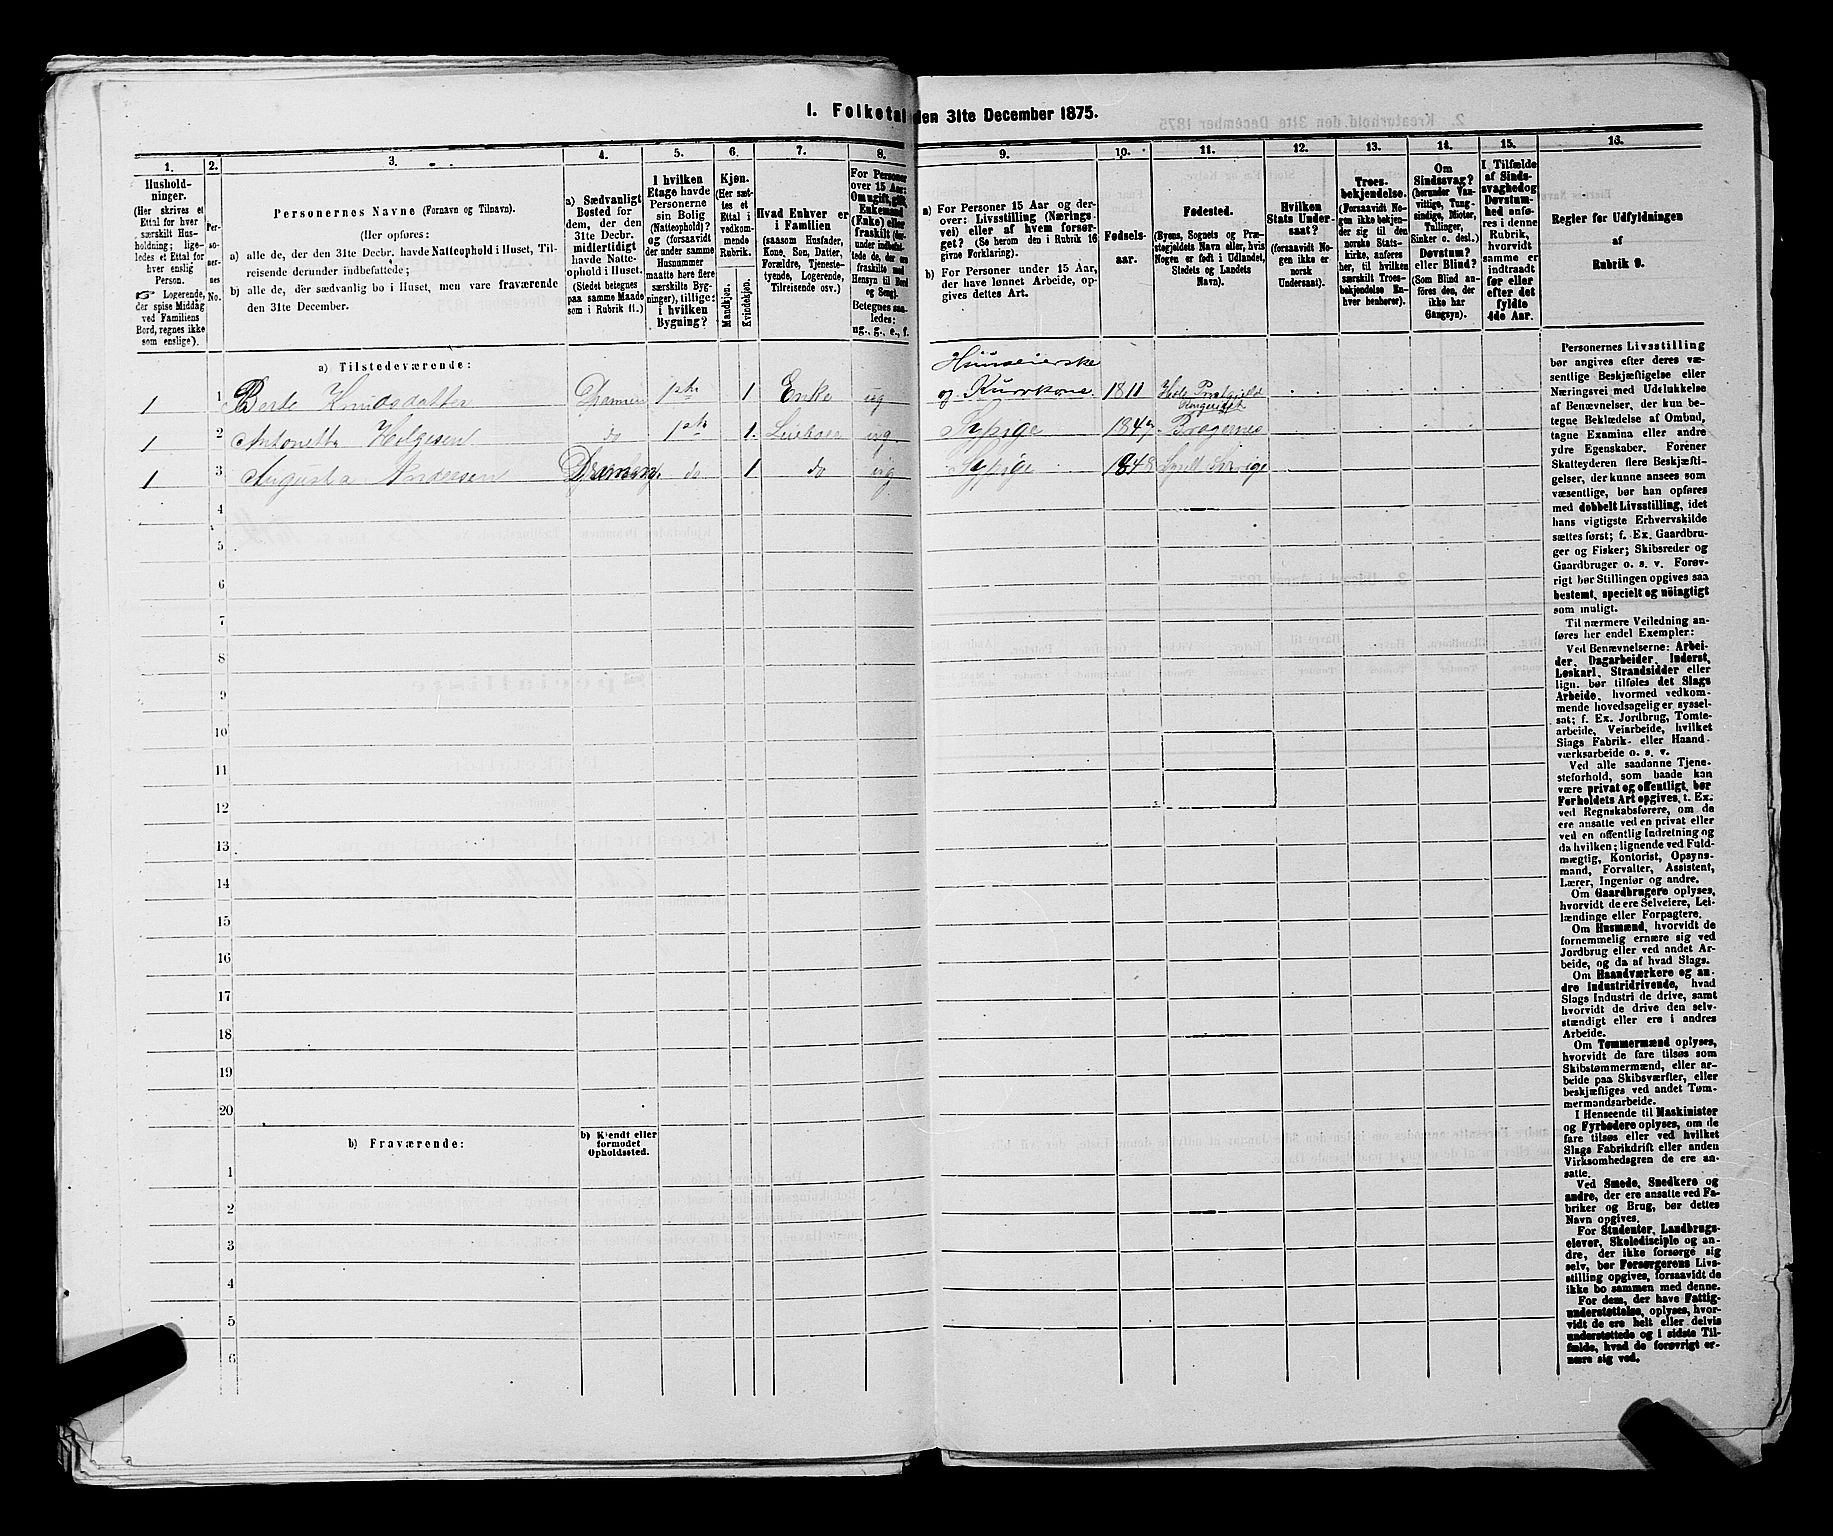 1. Folketal den 31te December 1875.
1. 2. 3. 4. 5. 6. 7. 8. 9. 10. 11. 12. 13. 14. 15. 16.
Hushold-
ninger.
(Her skrives et
Ettal for hver
særskilt Hus-
holdning; lige-
ledes et Ettal for
hver enslig
Person.
☞ Logerende,
der spise Middag
ved Familiens
Bord, regnes ikke
som enslige).
Per-
so-
ner-
nes
No.
Personernes Navne (Fornavn og Tilnavn).
(Her opføres:
a) alle de, der den 31te Decbr. havde Natteophold i Huset, Til-
reisende derunder indbefattede;
b) alle de, der sædvanlig bo i Huset, men vare fraværende
den 31te December.
a) Sædvanligt
Bosted for
dem, der den
31te Decbr.
midlertidigt
havde Natte-
ophold i Huset.
(Stedet betegnes
paa samme Maade
som i Rubrik 11.)
I hvilken
Etage havde
Personerne
sin Bolig
(Natteophold)?
og (forsaavidt
der under samme
Husnummer
maatte høre flere
særskilte Byg-
ninger), tillige:
i hvilken
Bygning?
Kjøn.
(Her sæt-
tes et
Ettal i
vedkom-
mende
Rubrik.
Mandkjøn.
Kvindekjøn.
Hvad Enhver er
i Familien
(saasom Husfader,
Kone, Søn, Datter,
Forældre, Tjeneste-
tyende, Logerende,
Tilreisende osv.)
For Personer
over 15 Aar:
Om ugift, gift,
Enkemand
(Enke) eller
fraskilt (her-
under indbefat-
tede de, der ere
fraskilte med
Hensyn til Bord
og Seng).
Betegnes saa-
ledes:
ug., g., e., f.
a) For Personer 15 Aar og der-
over: Livsstilling (Nærings-
vei) eller af hvem forsør-
get? (Se herom den i Rubrik 16
givne Forklaring).
b) For Personer under 15 Aar,
der have lønnet Arbeide, op-
gives dettes Art.
Fødsels-
aar.
Fødested.
(Byens, Sognets og Præ-
stegjeldets Navn eller, hvis
Nogen er født i Udlandet,
Stedets og Landets
Navn).
Hvilken
Stats Under-
saat?
(forsaavidt No-
gen ikke er
norsk
Undersaat).
Troes-
bekjendelse.
(Forsaavidt No-
gen ikke bekjen-
der sig til den
norske Stats-
kirke, anføres
her, til hvilken
særskilt Troes-
bekjendelse En-
hver henhører).
Om
Sindssvag?
(herunder Van-
vittige, Tung-
sindige, Idioter,
Tullinger,
Sinker o. desl.)
Døvstum?
eller Blind?
(Som Blind an-
føres den, der
ikke har
Gangsyn).
I Tilfælde
af Sinds-
svaghed og
Døvstum-
hed anfø-
res i denne
Rubrik,
hvorvidt
samme er
indtraadt
før eller
efter det
fyldte
4de Aar.
Regler før Udfyldningen
af
Rubrik 9.
a) Tilstedeværende:
1 1 Berte Knudsdatter 1 Enke ug Huuseierske og 1811
1 2 Antonette Helgesen do 1 ug 1847 Bragernes
1 3 Augusta Andersen do 1 do ug 1848
4
5
6
7
8
9
10
11
12
13
14
15
16
17
18
19
20
b) Fraværende:
b) Kjendt eller
formodet
Opholdssted.
1
2
3
4
5
6
Personernes Livsstilling
bør angives efter deres væ-
sentlige Beskjæftigelse eller
Næringsvei med Udelukkelse
af Benævnelser, der kun be-
tegne Beklædelse af Ombud,
tagne Examina eller andre
ydre Egenskaber. Forener
Skatteyderen flere Beskjæfti-
gelser, der kunne ansees som
væsentlige, bør han opføres
med dobbelt Livsstilling, idet
hans vigtigste Erhvervskilde
sættes først; f. Ex. Gaardbru-
ger og Fisker; Skibsreder og
Gaardbruger o. s. v. Forøv-
rigt bør Stillingen opgives saa
bestemt, specielt og nøiagtigt
som muligt.
Til nærmere Veiledning an-
føres her endel Exempler:
Ved Benævnelserne: Arbei-
der, Dagarbeider, Inderst,
Løskarl, Strandsidder eller
lign. bør tilføies det Slags
Arbeide, hvormed vedkom-
mende hovedsagelig er syssel-
sat; f. Ex. Jordbrug, Tomte-
arbeide, Veiarbeide, hvilket
Slags Fabrik- eller Haand-
værksarbeide o. s. v.
Ved alle saadanne Tjene-
steforhold, som baade kan
være privat og offentligt, bør
Forholdets Art opgives, t. Ex.
ved Regnskabsførere, om de
ere ansatte ved en privat eller
ved en offentlig Indretning og
da hvilken; lignende ved Fuld-
mægtig, Kontorist, Opsyns-
mand, Forvalter, Assistent,
Lærer, Ingeniør og andre.
Om Gaardbrugere oplyses,
hvorvidt de ere Selveiere, Lei-
lændinge eller Forpagtere.
Om Husmænd, hvorvidt de
fornemmelig ernære sig ved
Jordbrug eller ved andet Ar-
beide, og da af hvad Slags.
Om Haandværkere og an-
dre Industridrivende, hvad
Slags Industri de drive, samt
hvorvidt de drive den selv-
stændigt eller ere i andres
Arbeide.
Om Tømmermænd oplyses,
hvorvidt de fare tilsøs som
Skibstømmermænd, eller ar-
beide paa Skibsværfter, eller
beskjæftiges ved andet Tøm-
mermandsarbeide.
I Henseende til Maskinister
og Fyrbødere oplyses, om de
fare tilsøs eller ved hvilket
Slags Fabrikdrift eller anden
Virksomhedsgren de ere an-
satte.
Ved Smede, Snedkere og
andre, der ere ansatte ved Fa-
briker og Brug, bør dettes
Navn opgives.
For Studenter, Landbrugs-
elever, Skoledisciple og an-
dre, der ikke forsørge sig
selv, bør Forsørgerens Livs-
stilling opgives, forsaavidt de
ikke bo sammen med denne.
For dem, der have Fattig-
understøttelse, oplyses, hvor-
vidt de ere helt eller delvis
understøttede og i sidste Til-
fælde, hvad de forøvrigt er-
nære sig ved.